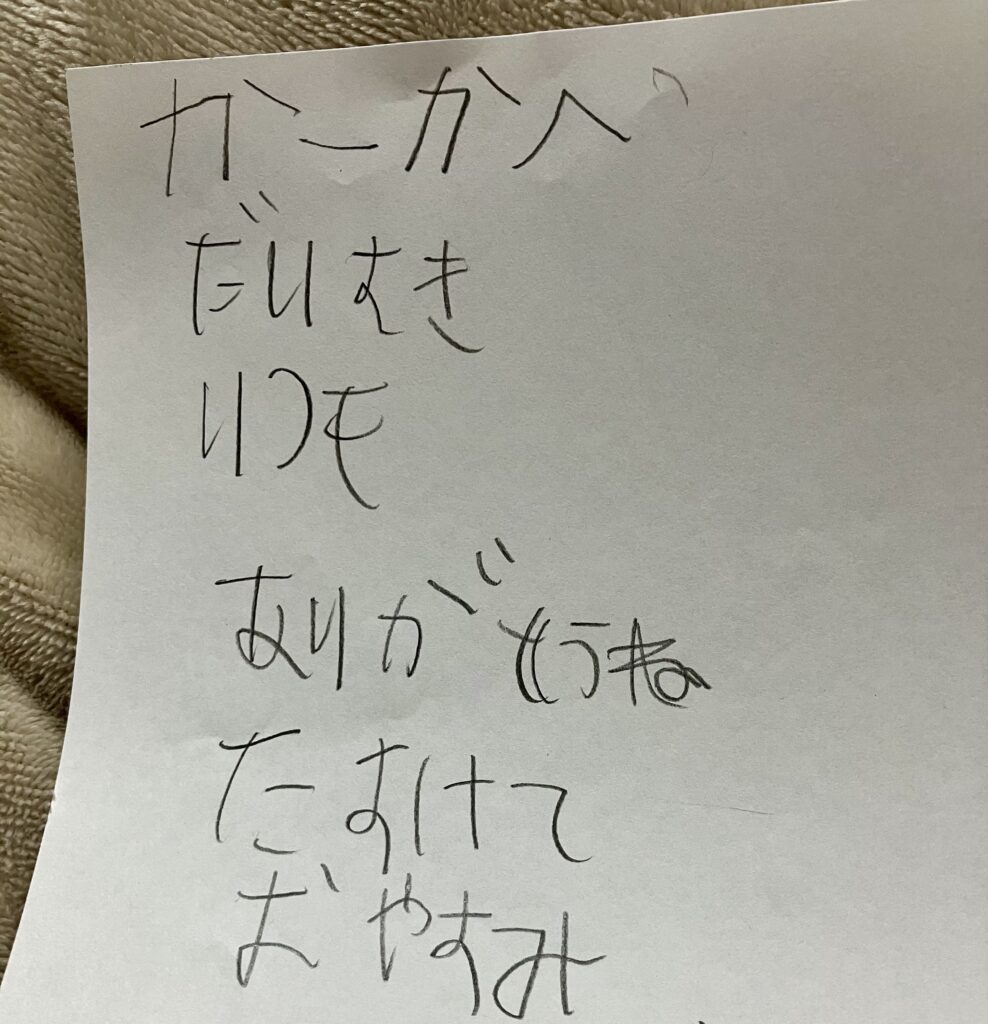 かーかへ
だいすき
いつも
ありがとうね
たすけて
おやすみ